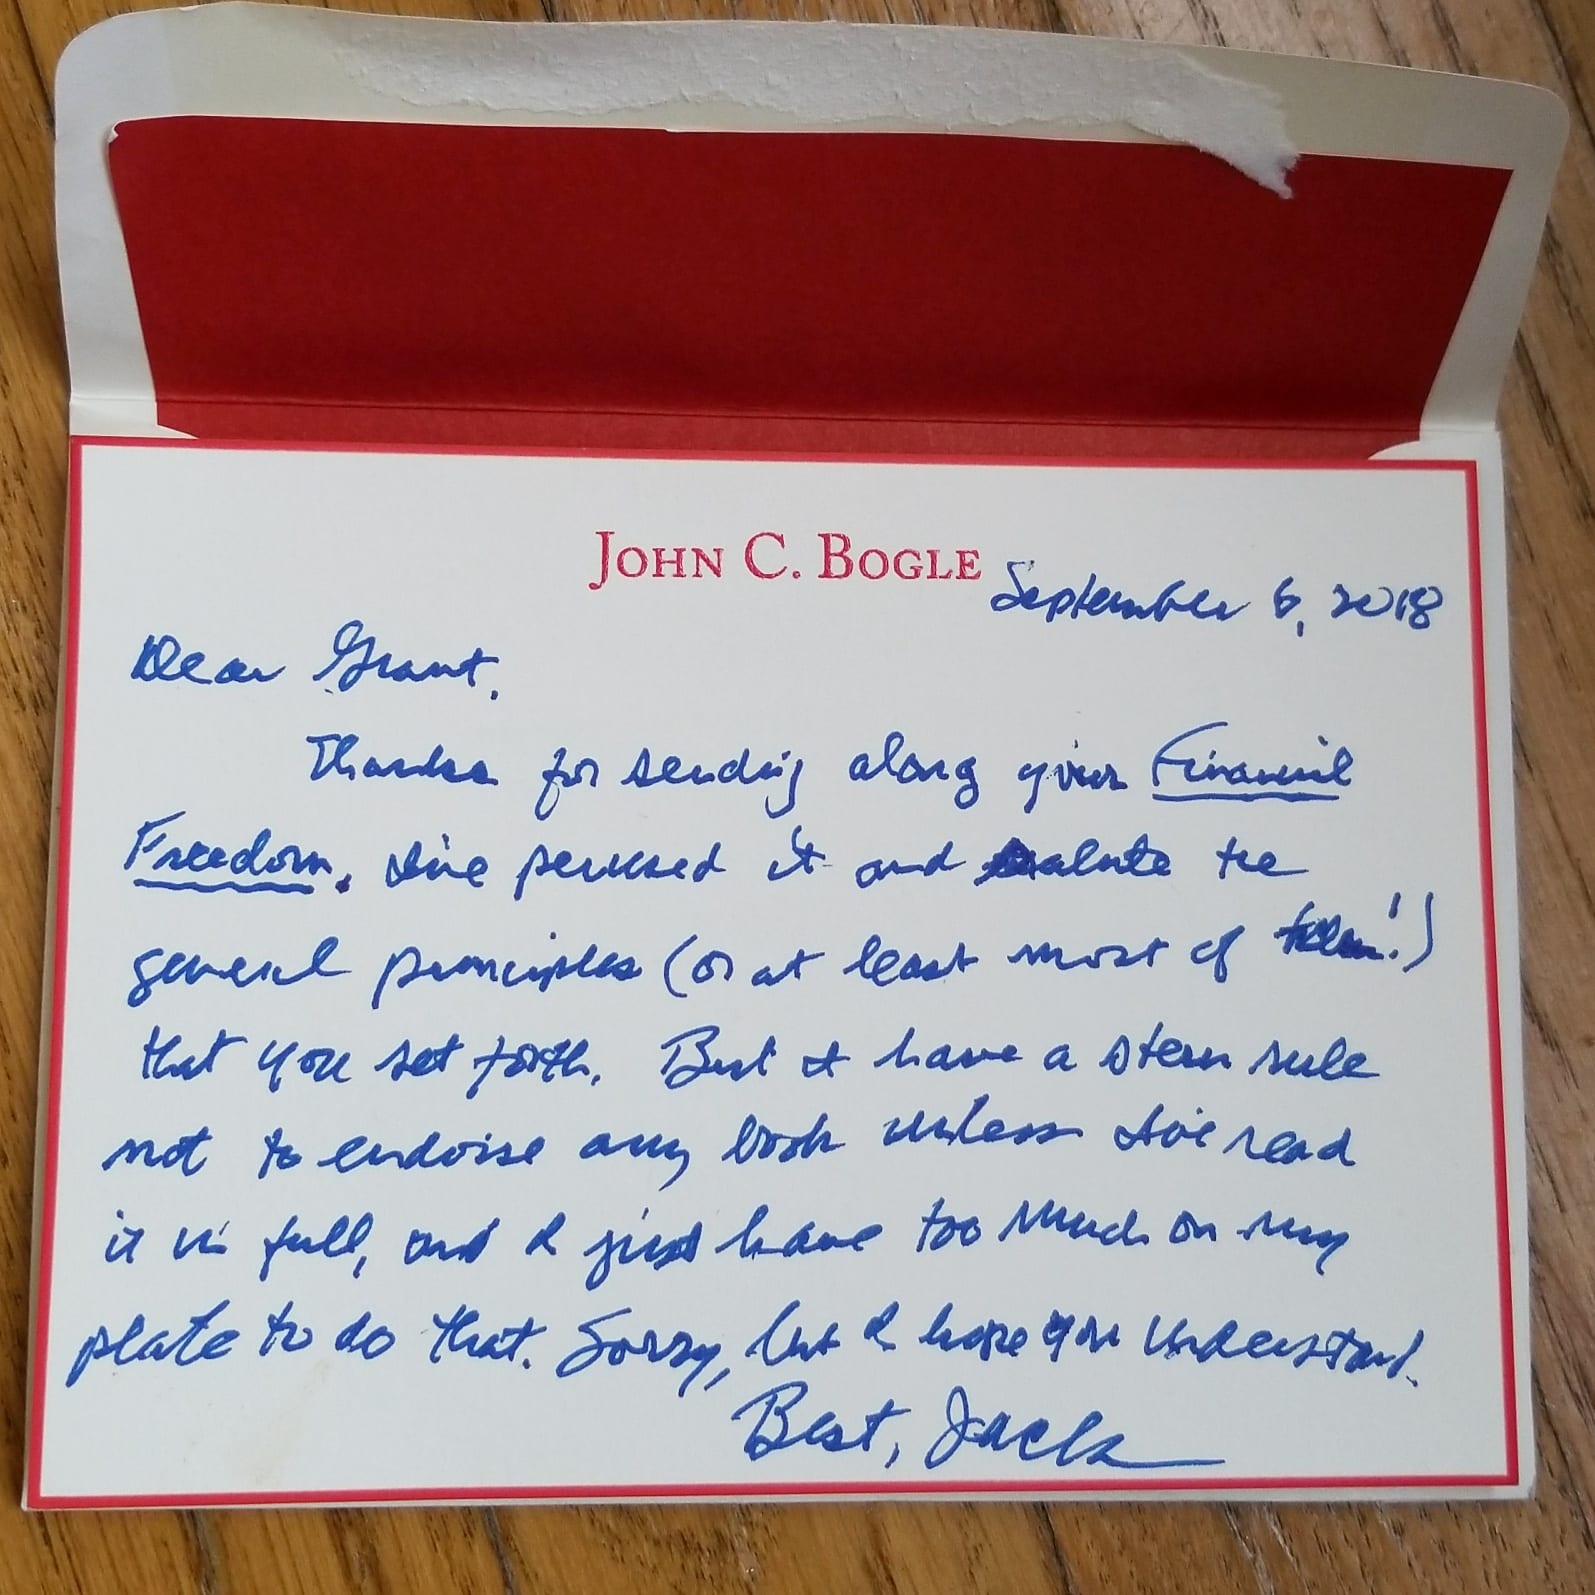 JOHN C. BOGLE
September 6, 2018
Dear Grant,
Thanks for sending along your Financial
Freedom. I've perused it and salute the
general principles (or at least most of them!)
that you set forth. But I have a stern rule
not to endorse any book unless I've read
it in full, and I just have too much on my
plate to do that. Sorry, but I hope you understand.
Best, Jack